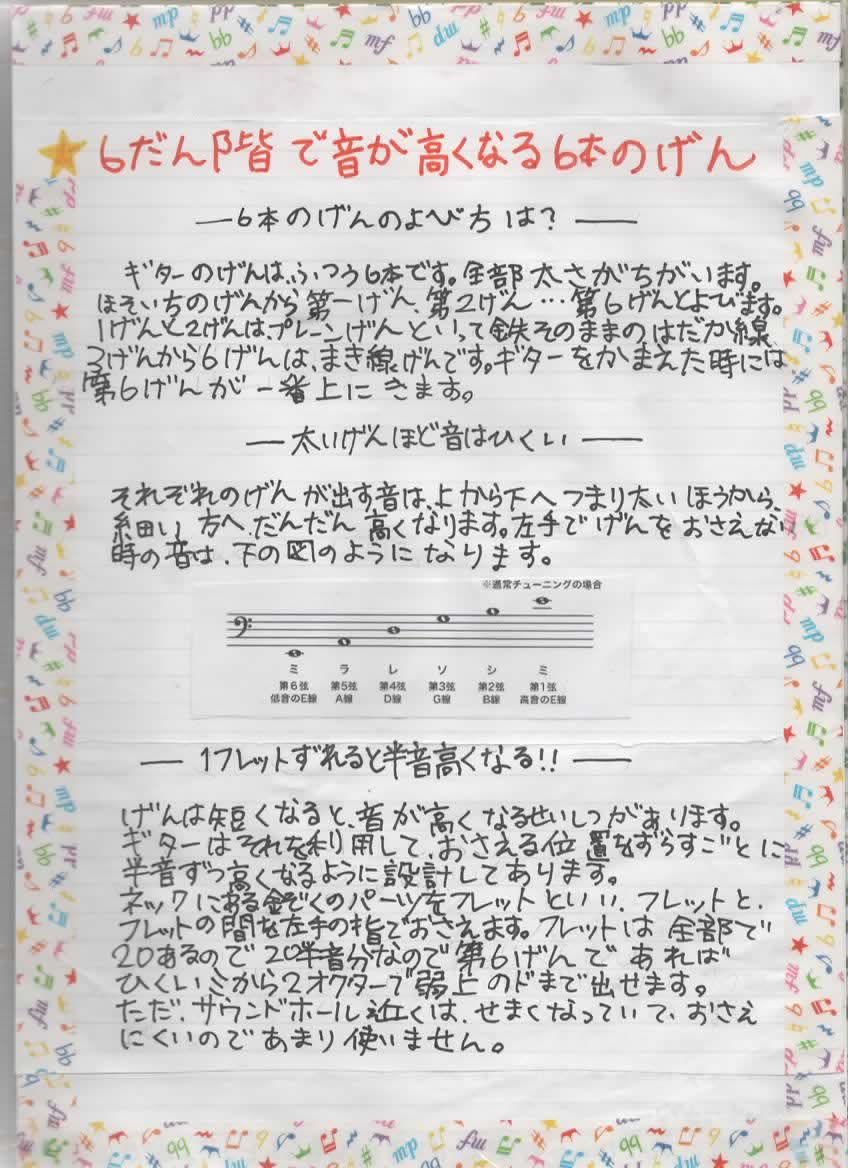 6だん階で音が高くなる6本のげん
―6本のげんのよび方は?―
ギターのげんは、ふつう6本です。全部太さがちがいます。
ほそいちのげんから第一げん、第2げん…第6げんとよびます。
1げんと2げんは、プレーンげんといって鉄そのままのはだか線、
3げんから6げんは、まき線げんです。ギターをかまえた時には
第6げんが一番上にきます。
―太いげんほど音はひくい―
それぞれのげんが出す音は、上から下へつまり太いほうから、
細い方へ、だんだん高くなります。左手でげんをおさえない
時の音は、下の図のようになります。
※通常チューニングの場合
ミ ラ レ ソ シ ミ
第6弦 第5弦 第4弦 第3弦 第2弦 第1弦
低音のE線 A線 D線 G線 B線 高音のE線
―1フレットずれると半音高くなる!!―
げんは短くなると、音が高くなるせいしつがあります。
ギターはそれを利用して、おさえる位置をずらすごとに
半音ずつ高くなるように設計してあります。
ネックにある金ぞくのパーツをフレットといい、フレットと、
フレットの間を左手の指でおさえます。フレットは全部で
20あるので20半音分なので第6げんであれば
ひくいミから2オクターで弱上のドまで出せます。
ただ、サウンドホール近くは、せまくなっていて、おさえ
にくいのであまり使いません。